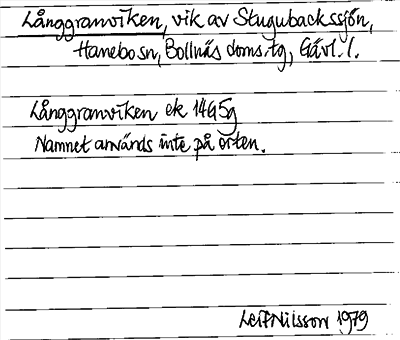 Långgranviken, vik av Stugubackssjön,
Hanebo sn, Bollnäs doms.tg, Gävl. l.
Långgranviken ek 14G5g
Namnet används inte på orten.
Leif Nilsson 1979